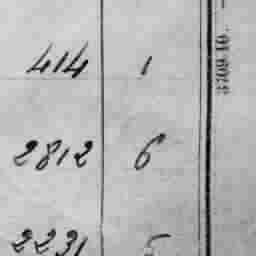 414 1
2812 6
2231 5
3709.10.